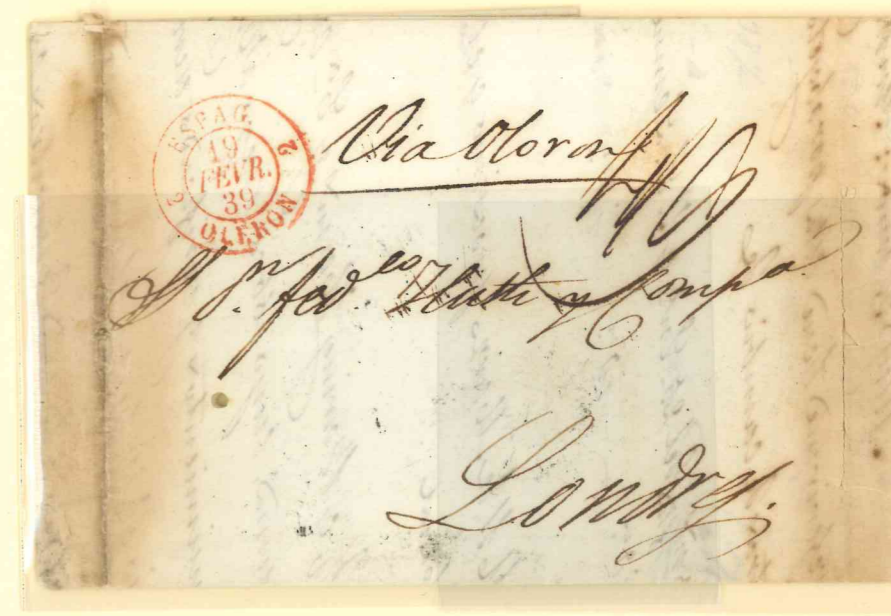 ESPAG.
19
FEVR.
39
OLERON
2 2
Via Oloron
1/10
Sr. Dn. Fed.co Huth y Compa.
Londres.